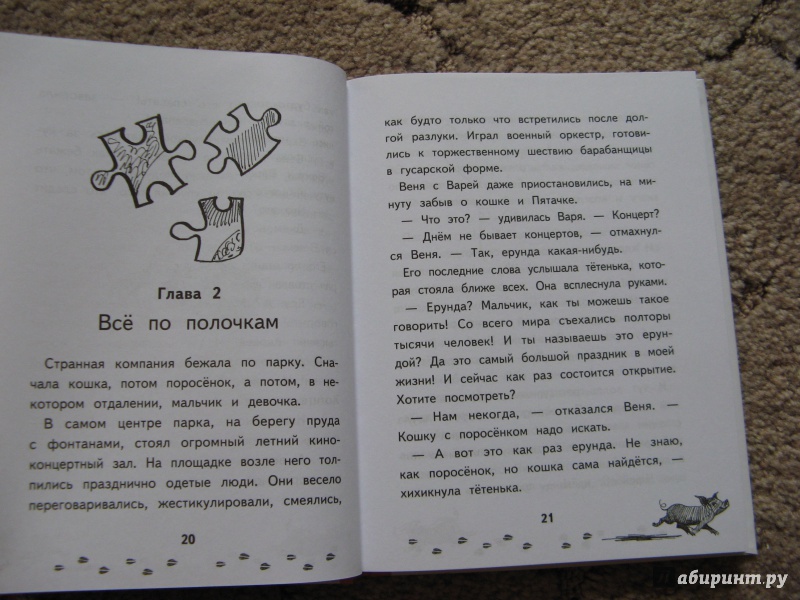 Глава 2
Всё по полочкам
Странная компания бежала по парку. Сна-
чала кошка, потом поросёнок, а потом, в не-
котором отдалении, мальчик и девочка.
В самом центре парка, на берегу пруда
с фонтанами, стоял огромный летний кино-
концертный зал. На площадке возле него тол-
пились празднично одетые люди. Они весело
переговаривались, жестикулировали, смеялись,
20
как будто только что встретились после дол-
гой разлуки. Играл военный оркестр, готови-
лись к торжественному шествию барабанщицы
в гусарской форме.
Веня с Варей даже приостановились, на ми-
нуту забыв о кошке и Пятачке.
— Что это? — удивилась Варя. — Концерт?
— Днём не бывает концертов, — отмахнул-
ся Веня. — Так, ерунда какая-нибудь.
Его последние слова услышала тётенька, кото-
рая стояла ближе всех. Она всплеснула руками.
— Ерунда? Мальчик, как ты можешь такое
говорить! Со всего мира съехались полторы
тысячи человек! И ты называешь это ерун-
дой? Да это самый большой праздник в моей
жизни! И сейчас как раз состоится открытие.
Хотите посмотреть?
— Нам некогда, — отказался Веня. —
Кошку с поросёнком надо искать.
— А вот это как раз ерунда. Не знаю,
как поросёнок, но кошка сама найдётся, —
хихикнула тётенька.
21
лабиринт.ру